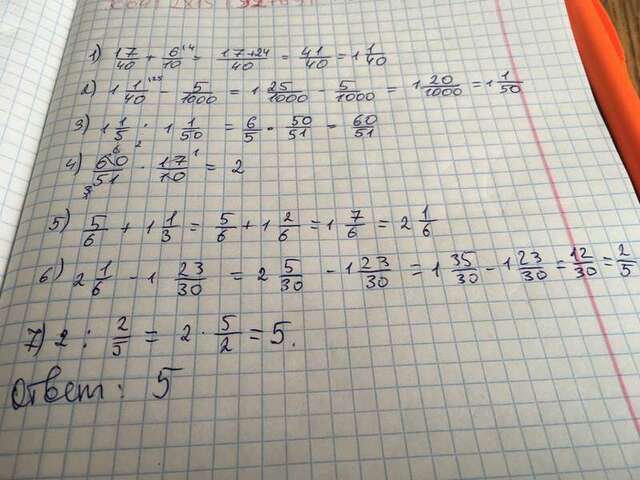 1) 17/40 + 6/10 = 17+24/40 = 41/40 = 1 1/40
2) 1 1/40 - 5/1000 = 1 25/1000 - 5/1000 = 1 20/1000 = 1 1/50
3) 1 1/5 : 1 1/50 = 6/5 · 50/51 = 60/51
4) 60/51 · 17/10 = 2
5) 5/6 + 1 1/3 = 5/6 + 1 2/6 = 1 7/6 = 2 1/6
6) 2 1/6 - 1 23/30 = 2 5/30 - 1 23/30 = 1 35/30 - 1 23/30 = 12/30 = 2/5
7) 2 : 2/5 = 2 · 5/2 = 5.
Ответ: 5